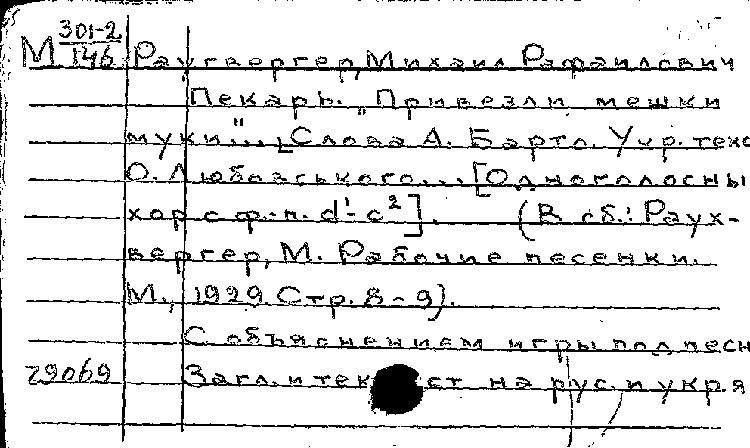 М 301-2/146 Раухвергер, Михаил Рафаилович
Пекарь. „Привезли мешки
муки"... [Слова А. Барто. Укр. текс
О. Любовського... [Одноголосны
хор с ф.-п. d¹-c²]. (В сб.: Раух-
вергер, М. Рабочие песенки.
М., 1929. Стр. 8-9).
С объяснением игры под песн
29069 Загл. и текст на рус. и укр. я